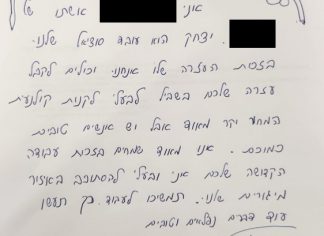 אני אשתו של
. יצחק הוא עובד סוציאל שלנו.
בזכות העזרה שלו אנחנו יכולים לקבל
עזרה שלכם בשביל לבעלי לקנות קולנועית
המחיר יקר מאוד אבל יש אנשים טובים
כמוכם. אנו מאוד שמחים בזכות עבודה
הקדושה שלכם אני ובעלי להסתובב באיזור
מיגורים שלנו. תמשיכו לעבוד כך תעשו
עוד דברים נפלאים וטובים